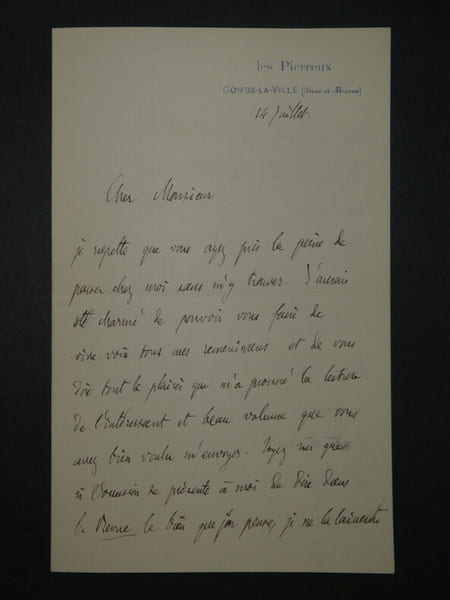 les Pierreux
COMBS-LA-VILLE (Seine-et-Marne)
14 Juillet.
Cher Monsieur
je regrette que vous ayez pris la peine de
passer chez moi sans m'y trouver. J'aurais
été charmé de pouvoir vous faire de
vive voix tous mes remerciemens et de vous
dire tout le plaisir que m'a procuré la lecture
de l'intéressant et beau volume que vous
avez bien voulu m'envoyer. Soyez sûr que
si l'occasion se présente à moi de dire dans
la Revue le bien que j'en pense, je ne la laisserai